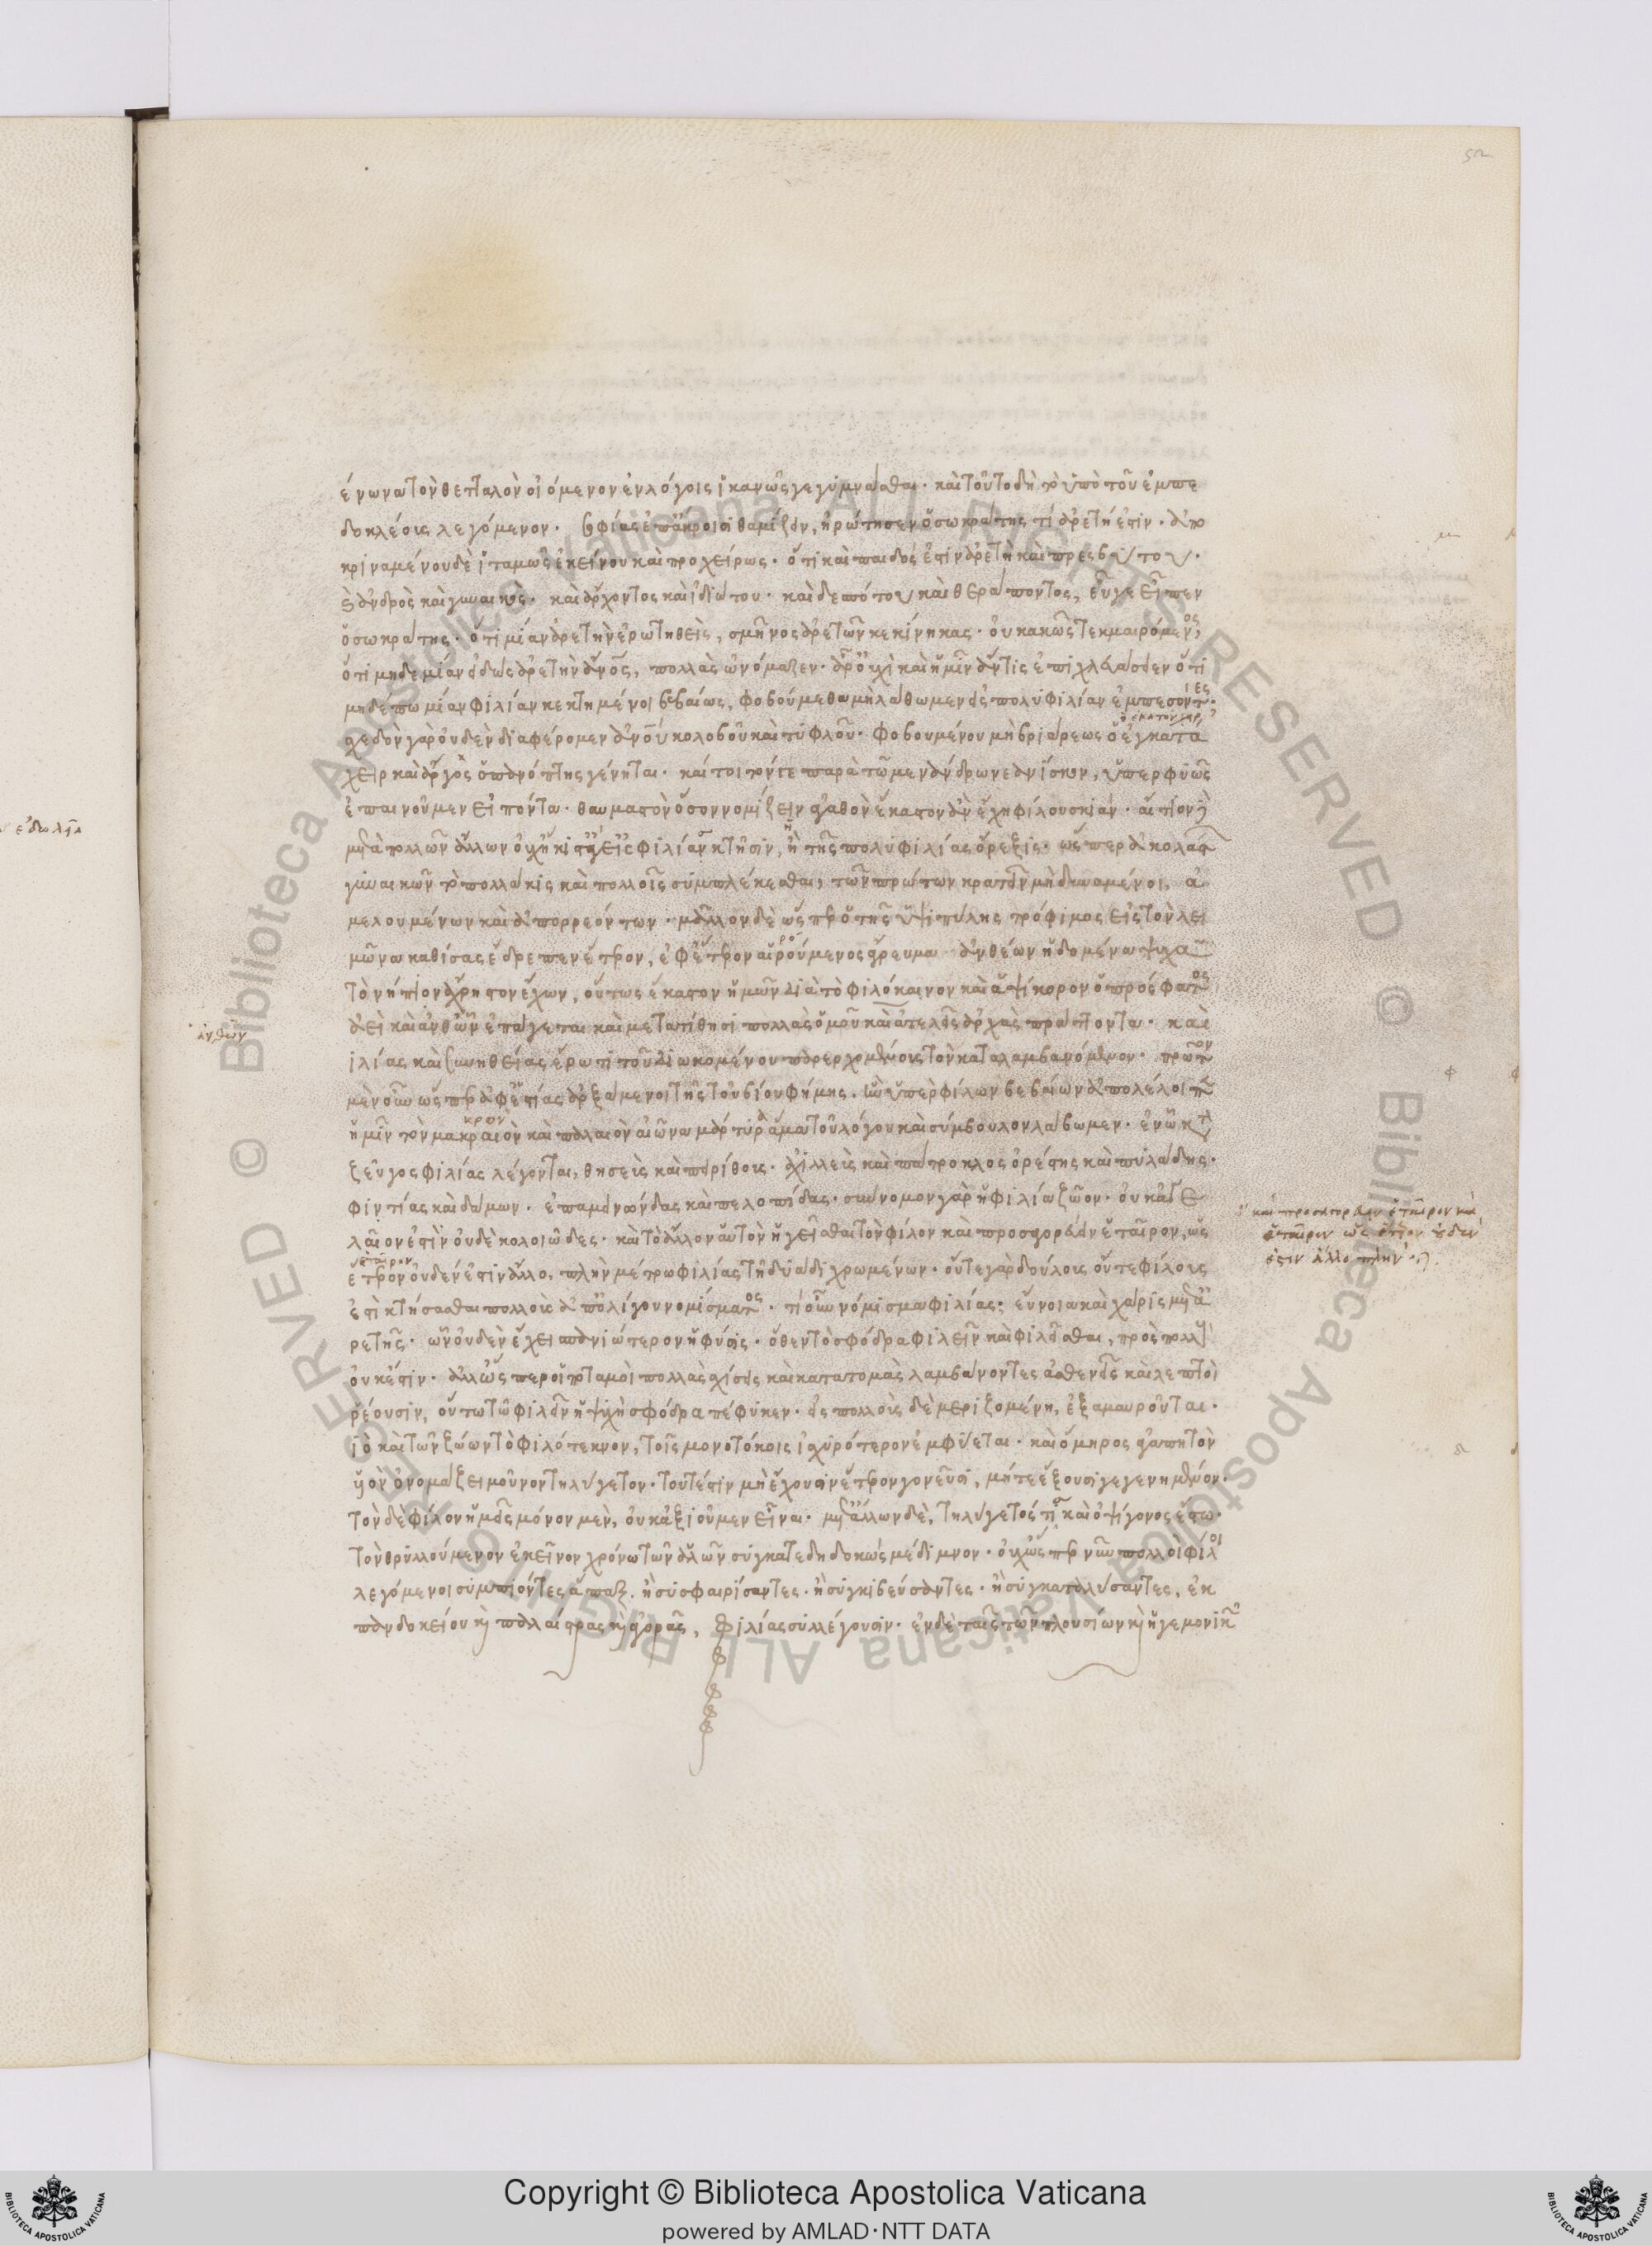 ένωνα τὸν θετταλὸν οἰόμενον ἐν λόγοις ἱκανῶς γεγυμνάσθαι· καὶ τοῦτο δὴ τὸ ὑπὸ τοῦ ἐμπε
δοκλέους λεγόμενον· σοφίας ἐπ' ἄκροισι θαμίζειν, ἠρώτησεν ὁ σωκράτης τί ἀρετή ἐστιν· ἀπο
κριναμένου δὲ ἰταμῶς ἐκείνου καὶ προχείρως· ὅτι καὶ παιδός ἐστιν ἀρετὴ καὶ πρεσβύτου·
καὶ ἀνδρὸς καὶ γυναικός· καὶ ἄρχοντος καὶ ἰδιώτου· καὶ δεσπότου καὶ θεράποντος, εὖγε εἶπεν
ὁ σωκράτης· ὅτι μίαν ἀρετὴν ἐρωτηθεὶς, σμῆνος ἀρετῶν κεκίνηκας· οὐ κακῶς τεκμαιρόμενος,
ὅτι μηδεμίαν εἰδὼς ἀρετὴν ἄνος, πολλὰς ὠνόμαζεν· ἆρ' οὐχὶ καὶ ἡμῖν ἄν τις ἐπιχλευάσειεν ὅτι
μηδέπω μίαν φιλίαν κεκτημένοι βεβαίως, φοβούμεθα μὴ λάθωμεν εἰς πολυφιλίαν ἐμπεσόντες·
σχεδὸν γὰρ οὐδὲν διαφέρομεν ἀνοῦ κολοβοῦ καὶ τυφλοῦ· φοβουμένου μὴ βριάρεως ὁ ἑγκατα
χειρ καὶ ἄργος ὁ πανόπτης γένηται· καίτοι τόν τε παρὰ τῶ μενάνδρω νεανίσκον, ὑπερφυῶς
ἐπαινοῦμεν εἰπόντα· θαυμαστὸν ὅσον νομίζειν ἀγαθὸν ἕκαστον ἂν ἔχη φίλου σκιάν· αἴτιον δὲ
μετὰ πολλῶν ἄλλων οὐχ ἥκιστα εἰς φιλίας κτῆσιν, ἡ τῆς πολυφιλίας ὄρεξις· ὥσπερ ἀκολάστων
γυναικῶν τὸ πολλάκις καὶ πολλοῖς συμπλέκεσθαι, τῶν πρώτων κρατεῖν μὴ δυναμένοι, ἀ
μελουμένων καὶ ἀπορρεόντων· μᾶλλον δὲ ὥσπερ ὁ τῆς ὑψιπύλης τρόφιμος εἰς τὸν λει
μῶνα καθίσας ἔδρεπεν ἕτερον, ἐφ' ἑτέρον αἰρούμενος ἄγρευμα ἀνθέων ἡδομένα ψυχᾶ
τὸ νήπιον ἄχρηστον ἔχων, οὕτως ἕκαστον ἡμῶν διὰ τὸ φιλόκαινον καὶ ἁψίκορον ὁ πρόσφατος
ἀεὶ καὶ ἀνθῶν ἐπάγεται καὶ μετατίθησι πολλὰς ὁμοῦ καὶ ἀτελεῖς ἀρχὰς πράττοντα· καὶ
ιλίας καὶ συνηθείας ἔρωτι τοῦ διωκομένου παρερχομένους τὸν καταλαμβανόμενον· πρῶτον
μὲν οὖν ὥσπερ ἀφ' ἑστίας ἀρξάμενοι τῆς τοῦ βίου φήμης, ἣν ὑπὲρ φίλων βεβαίων ἀπολέλοιπεν
ἡμῖν τὸν μακραιὸν καὶ παλαιὸν αἰῶνα μάρτυρα ἅμα τοῦ λόγου καὶ σύμβουλον λάβωμεν· ἐν ὧ κατὰ
ζεῦγος φιλίας λέγονται, θησεὺς καὶ πειρίθους· ἀχιλλεὺς καὶ πάτροκλος ὀρέστης καὶ πυλάδης·
φιντίας καὶ δάμων· ἐπαμεινώνδας καὶ πελοπίδας· σύννομον γὰρ ἡ φιλία ζῶον· οὐκ ἀγε
λαῖον ἐστὶν οὐδὲ κολοιῶδες· καὶ τὸ ἄλλον αὐτὸν ἡγεῖσθαι τὸν φίλον καὶ προσαγορεύειν ἑταῖρον, ὡς
ἕτερον οὐδέν ἐστιν ἄλλο, πλὴν μέτρω φιλίας τῆ δυάδι χρωμένων· οὔτε γὰρ δούλους οὔτε φίλους
ἐστὶ κτήσασθαι πολλοὺς ἀπ' ὀλίγου νομίσματος· τί οὖν νόμισμα φιλίας; εὔνοια καὶ χάρις μετὰ ἀ
ρετῆς· ὧν οὐδὲν ἔχει σπανιώτερον ἡ φύσις· ὅθεν τὸ σφόδρα φιλεῖν καὶ φιλεῖσθαι, πρὸς πολλοὺς
οὐκ ἔστιν· ἀλλ' ὥσπερ οἱ ποταμοὶ πολλὰς σχίσεις καὶ κατατομὰς λαμβάνοντες ἀσθενεῖς καὶ λεπτοὶ
ῥέουσιν, οὕτω τῶ φιλεῖν ἡ ψυχὴ σφόδρα πέφυκεν· εἰς πολλοὺς δὲ μεριζομένη, ἐξαμαυροῦται·
ιὸ καὶ τῶν ζώων τὸ φιλότεκνον, τοῖς μονοτόκοις ἰσχυρότερον ἐμφύεται· καὶ ὅμηρος ἀγαπητὸν
υἱὸν ὀνομάζει μοῦνον τηλύγετον· τουτέστιν μὴ ἔχουσιν ἕτερον γονεῦσι, μήτε ἕξουσι γεγενημένον·
τὸν δὲ φίλον ἡμεῖς μόνον μὲν, οὐκ ἀξιοῦμεν εἶναι· μετ' ἄλλων δὲ, τηλύγετός τις καὶ ὀψίγονος ἔστω·
τὸν θρυλλούμενον ἐκεῖνον χρόνω τῶν ἁλῶν συγκατεδηδοκὼς μέδιμνον· οὐχ ὥσπερ νῦν πολλοὶ φίλοι
λεγόμενοι συμπιόντες ἅπαξ, ἢ συσφαιρίσαντες· ἢ συγκυβεύσαντες· ἢ συγκαταλύσαντες, ἐκ
πανδοκείου καὶ παλαίστρας καὶ ἀγορᾶς, φιλίας συλλέγουσιν· ἐν δὲ ταῖς τῶν πλουσίων καὶ ἡγεμονικῶν
ἀνθέων
καὶ προσαγορεύειν ἑταῖρον καὶ
ἑταῖρον ὡς ἕτερον οὐδέν
ἐστιν ἄλλο πλὴν·
Copyright © Biblioteca Apostolica Vaticana
powered by AMLAD·NTT DATA